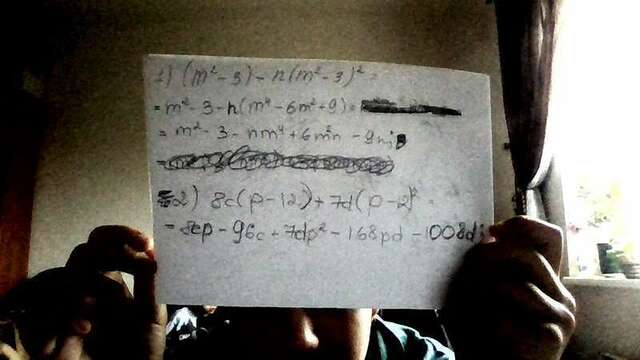 1) (m² - 3) - n(m² - 3)² =
= m² - 3 - n(m⁴ - 6m² + 9) =
= m² - 3 - nm⁴ + 6m²n - 9n;
=
2) 8c(p - 12) + 7d(p - 2)² =
= 8cp - 96c + 7dp² - 168pd - 1008d;